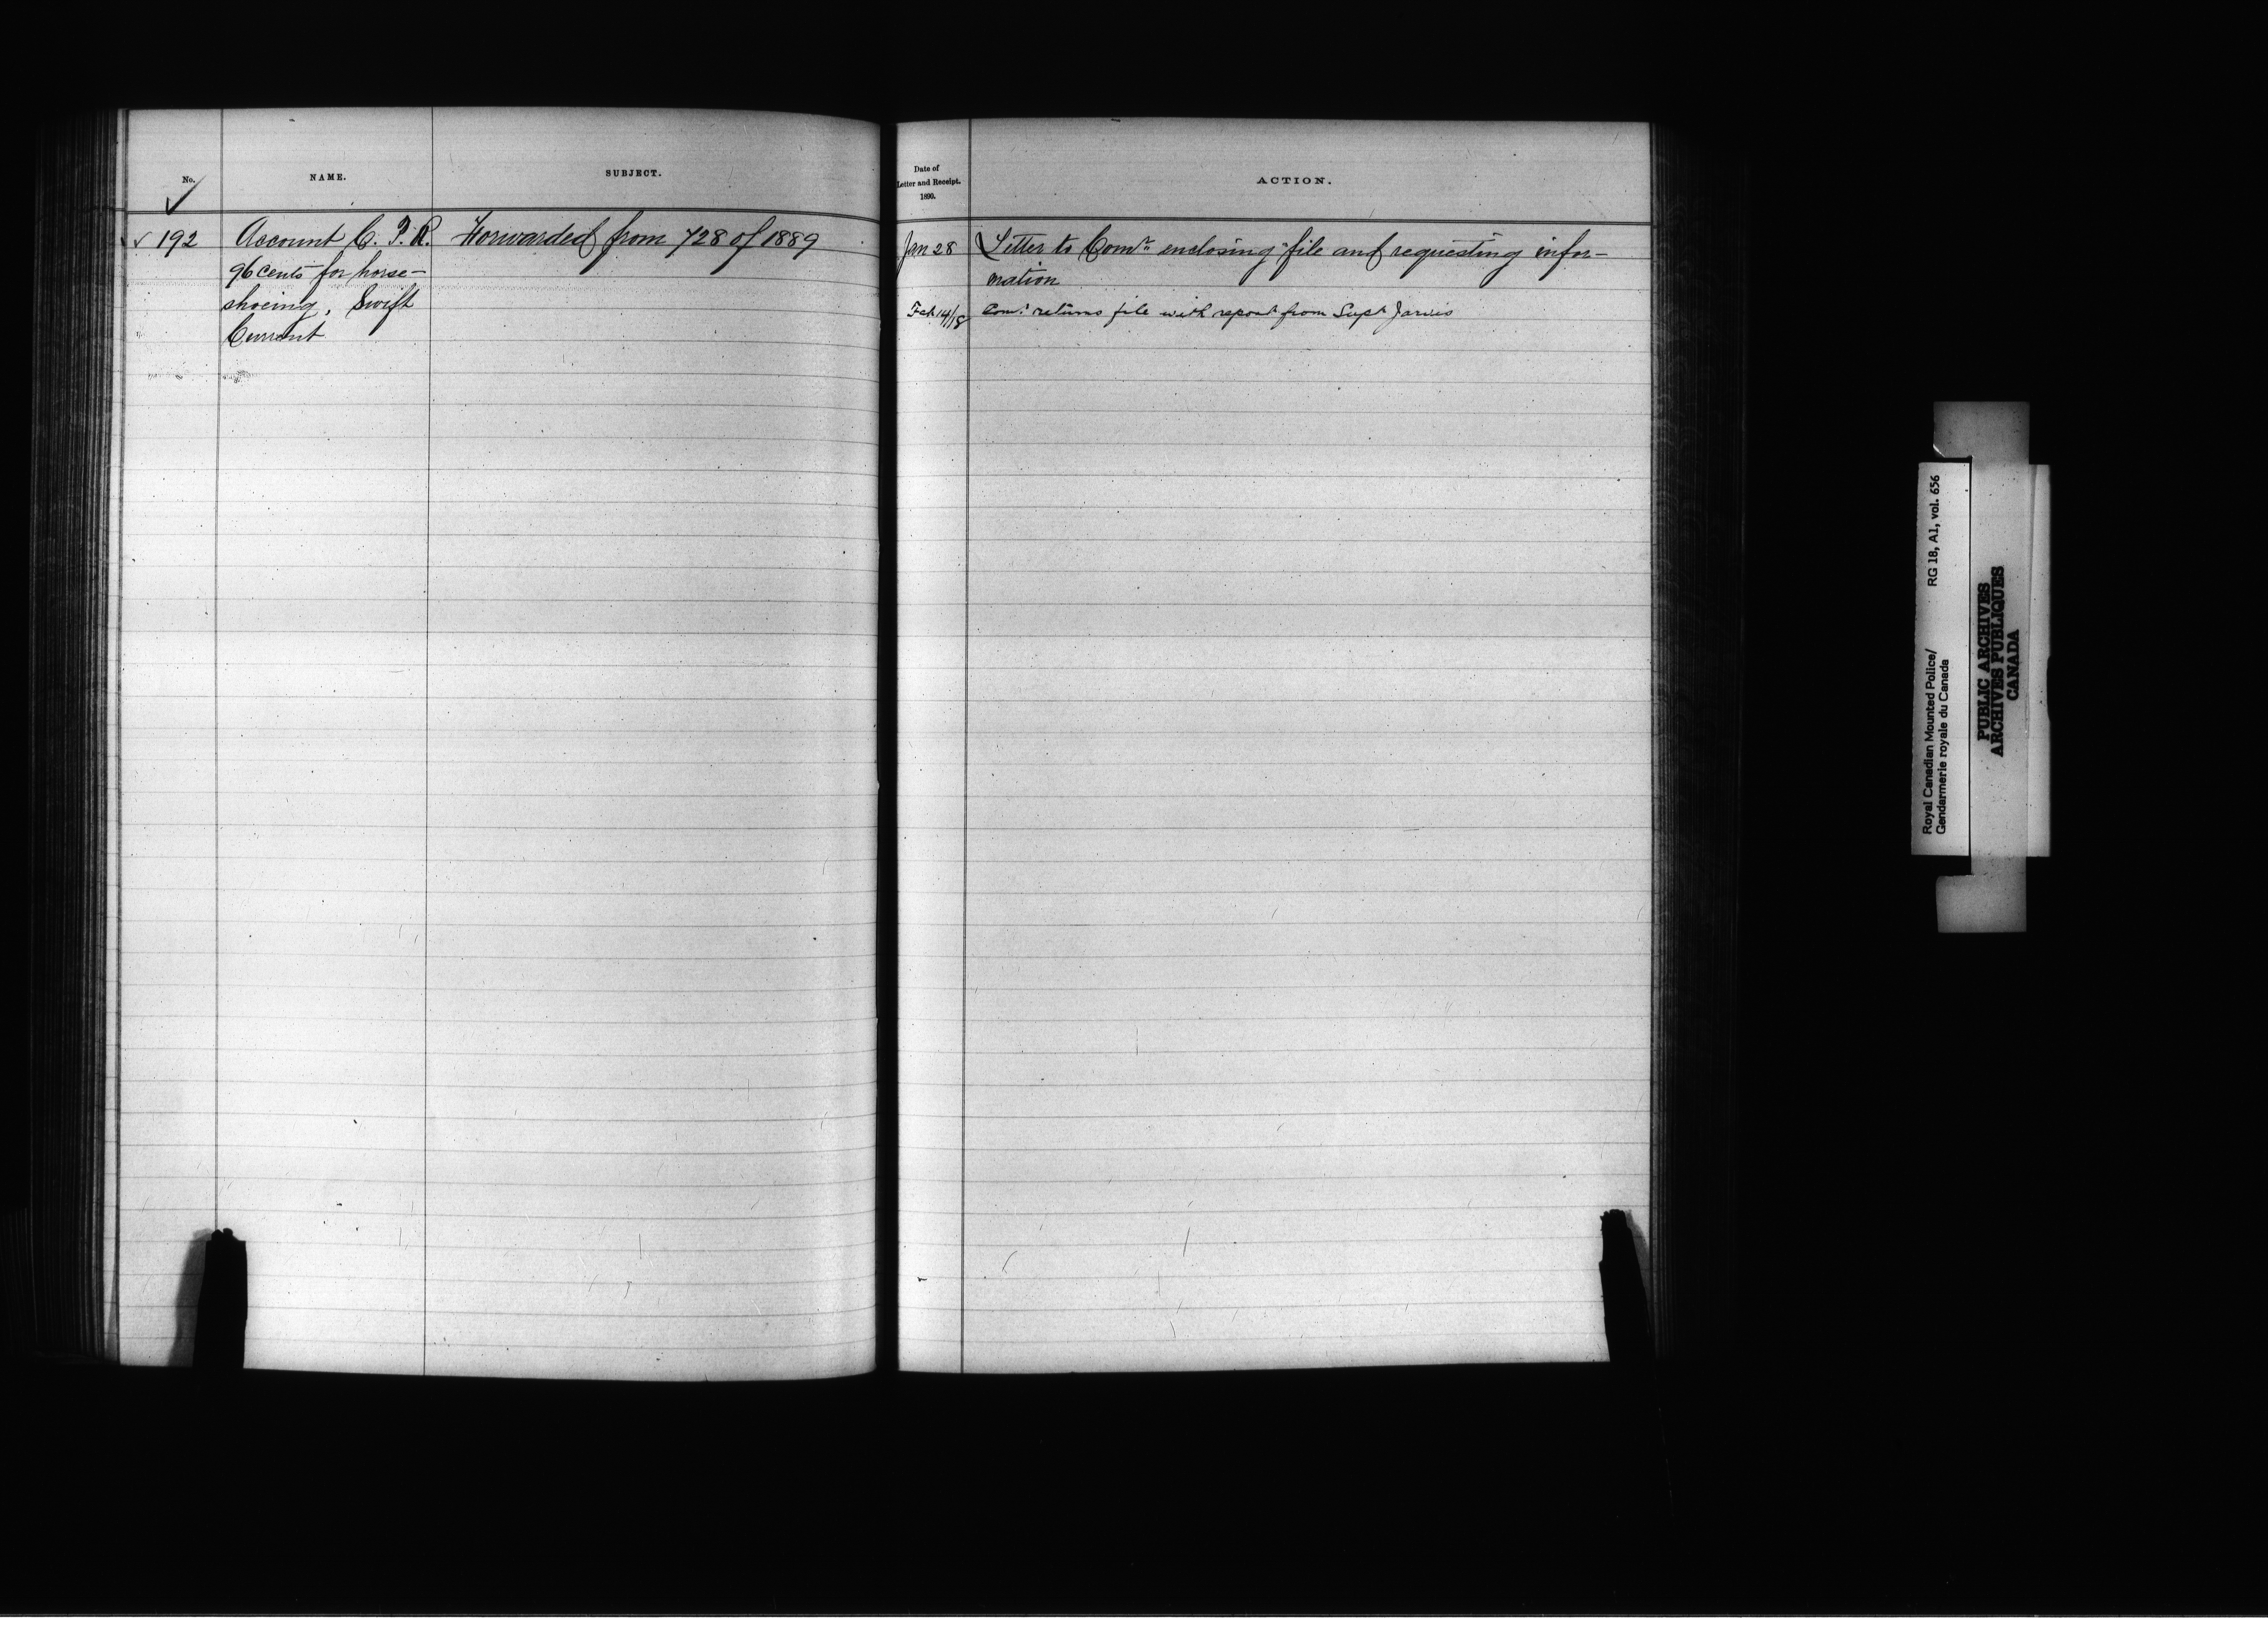 No. NAME. SUBJECT.
✓
✓ 192 Account C. P. R. Forwarded from 728 of 1889
96 cents for horse-
shoeing, Swift
Current
Date of
Letter and Receipt.
1890.
ACTION.
Jan 28 Letter to Comr. enclosing file and requesting infor-
mation
Feb 14/18 Comr. returns file with report from Supt Jarvis
Royal Canadian Mounted Police/
Gendarmerie royale du Canada
RG 18, A1, vol. 656
PUBLIC ARCHIVES
ARCHIVES PUBLIQUES
CANADA